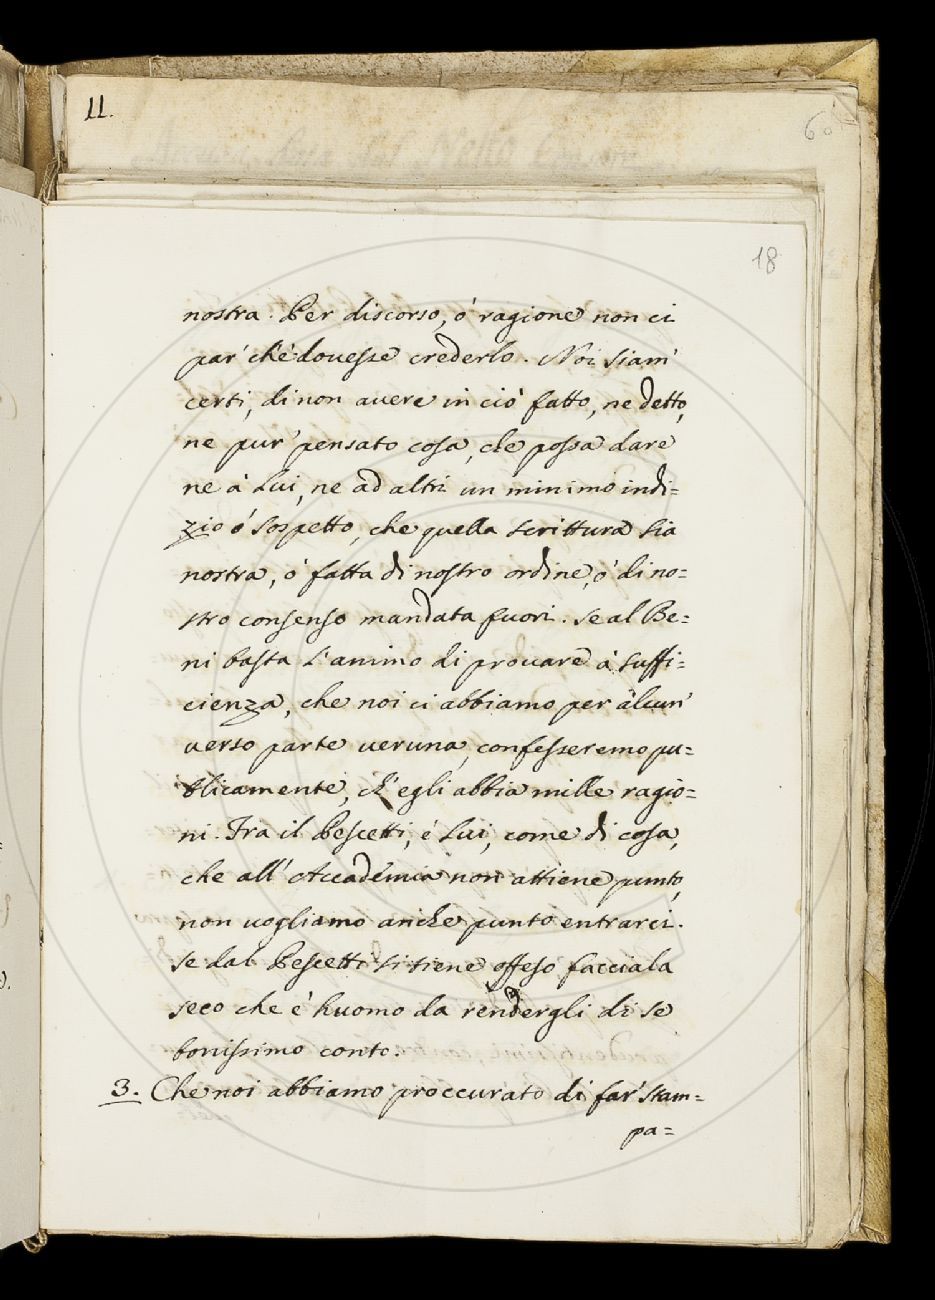 11.
60
18
nostra. Per discorso, ó ragione non ci
par' ché douesse crederlo. Noi siam'
certi, di non auere in ció fatto, ne detto,
ne pur' pensato cosa, che possa dare
ne á Lui, ne ad altri un minimo indi=
zio ó sospetto, che quella scrittura sia
nostra, ó fatta di nostro ordine, ó di no=
stro consenso mandata fuori. Se al Be=
ni basta l'animo di prouare á suffi=
cienza, che noi ci abbiamo per alcun'
uerso parte ueruna, confesseremo pu=
blicamente, ch'egli abbia mille ragio=
ni. Fra il Pescetti, é Lui, come di cosa,
che all' Accadémia non attiene punto,
non uogliamo anche punto entrarci.
Se dal Pescetti si tiene offeso facciala
seco che é huomo da rendergli di se
bonissimo conto.
3. Che noi abbiamo proccurato di far' stam=
pa=